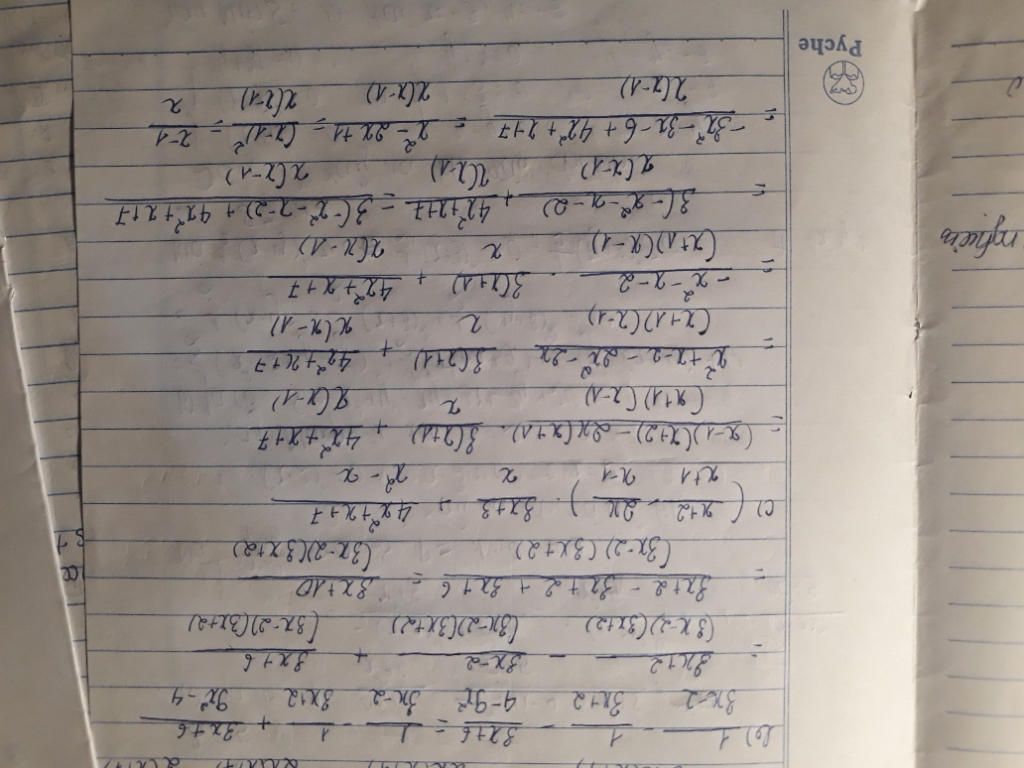 b) 1/(3x-2) - 1/(3x+2) - (3x+6)/(4-9x²) = 1/(3x-2) - 1/(3x+2) + (3x+6)/(9x²-4)
= (3x+2)/((3x-2)(3x+2)) - (3x-2)/((3x-2)(3x+2)) + (3x+6)/((3x-2)(3x+2))
= (3x+2 - 3x+2 + 3x+6)/((3x-2)(3x+2)) = (3x+10)/((3x-2)(3x+2))
c) ((x+2)/(x+1) - 2x/(x-1)) . (3x+3)/x + (4x²+x+7)/(x²-x)
= ((x-1)(x+2) - 2x(x+1))/((x+1)(x-1)) . 3(x+1)/x + (4x²+x+7)/(x(x-1))
= (x²+x-2 - 2x²-2x)/((x+1)(x-1)) . 3(x+1)/x + (4x²+x+7)/(x(x-1))
= (-x²-x-2)/((x+1)(x-1)) . 3(x+1)/x + (4x²+x+7)/(x(x-1))
= 3(-x²-x-2)/(x(x-1)) + (4x²+x+7)/(x(x-1)) = (3(-x²-x-2) + 4x²+x+7)/(x(x-1))
= (-3x²-3x-6 + 4x²+x+7)/(x(x-1)) = (x²-2x+1)/(x(x-1)) = (x-1)²/(x(x-1)) = (x-1)/x
Pyche